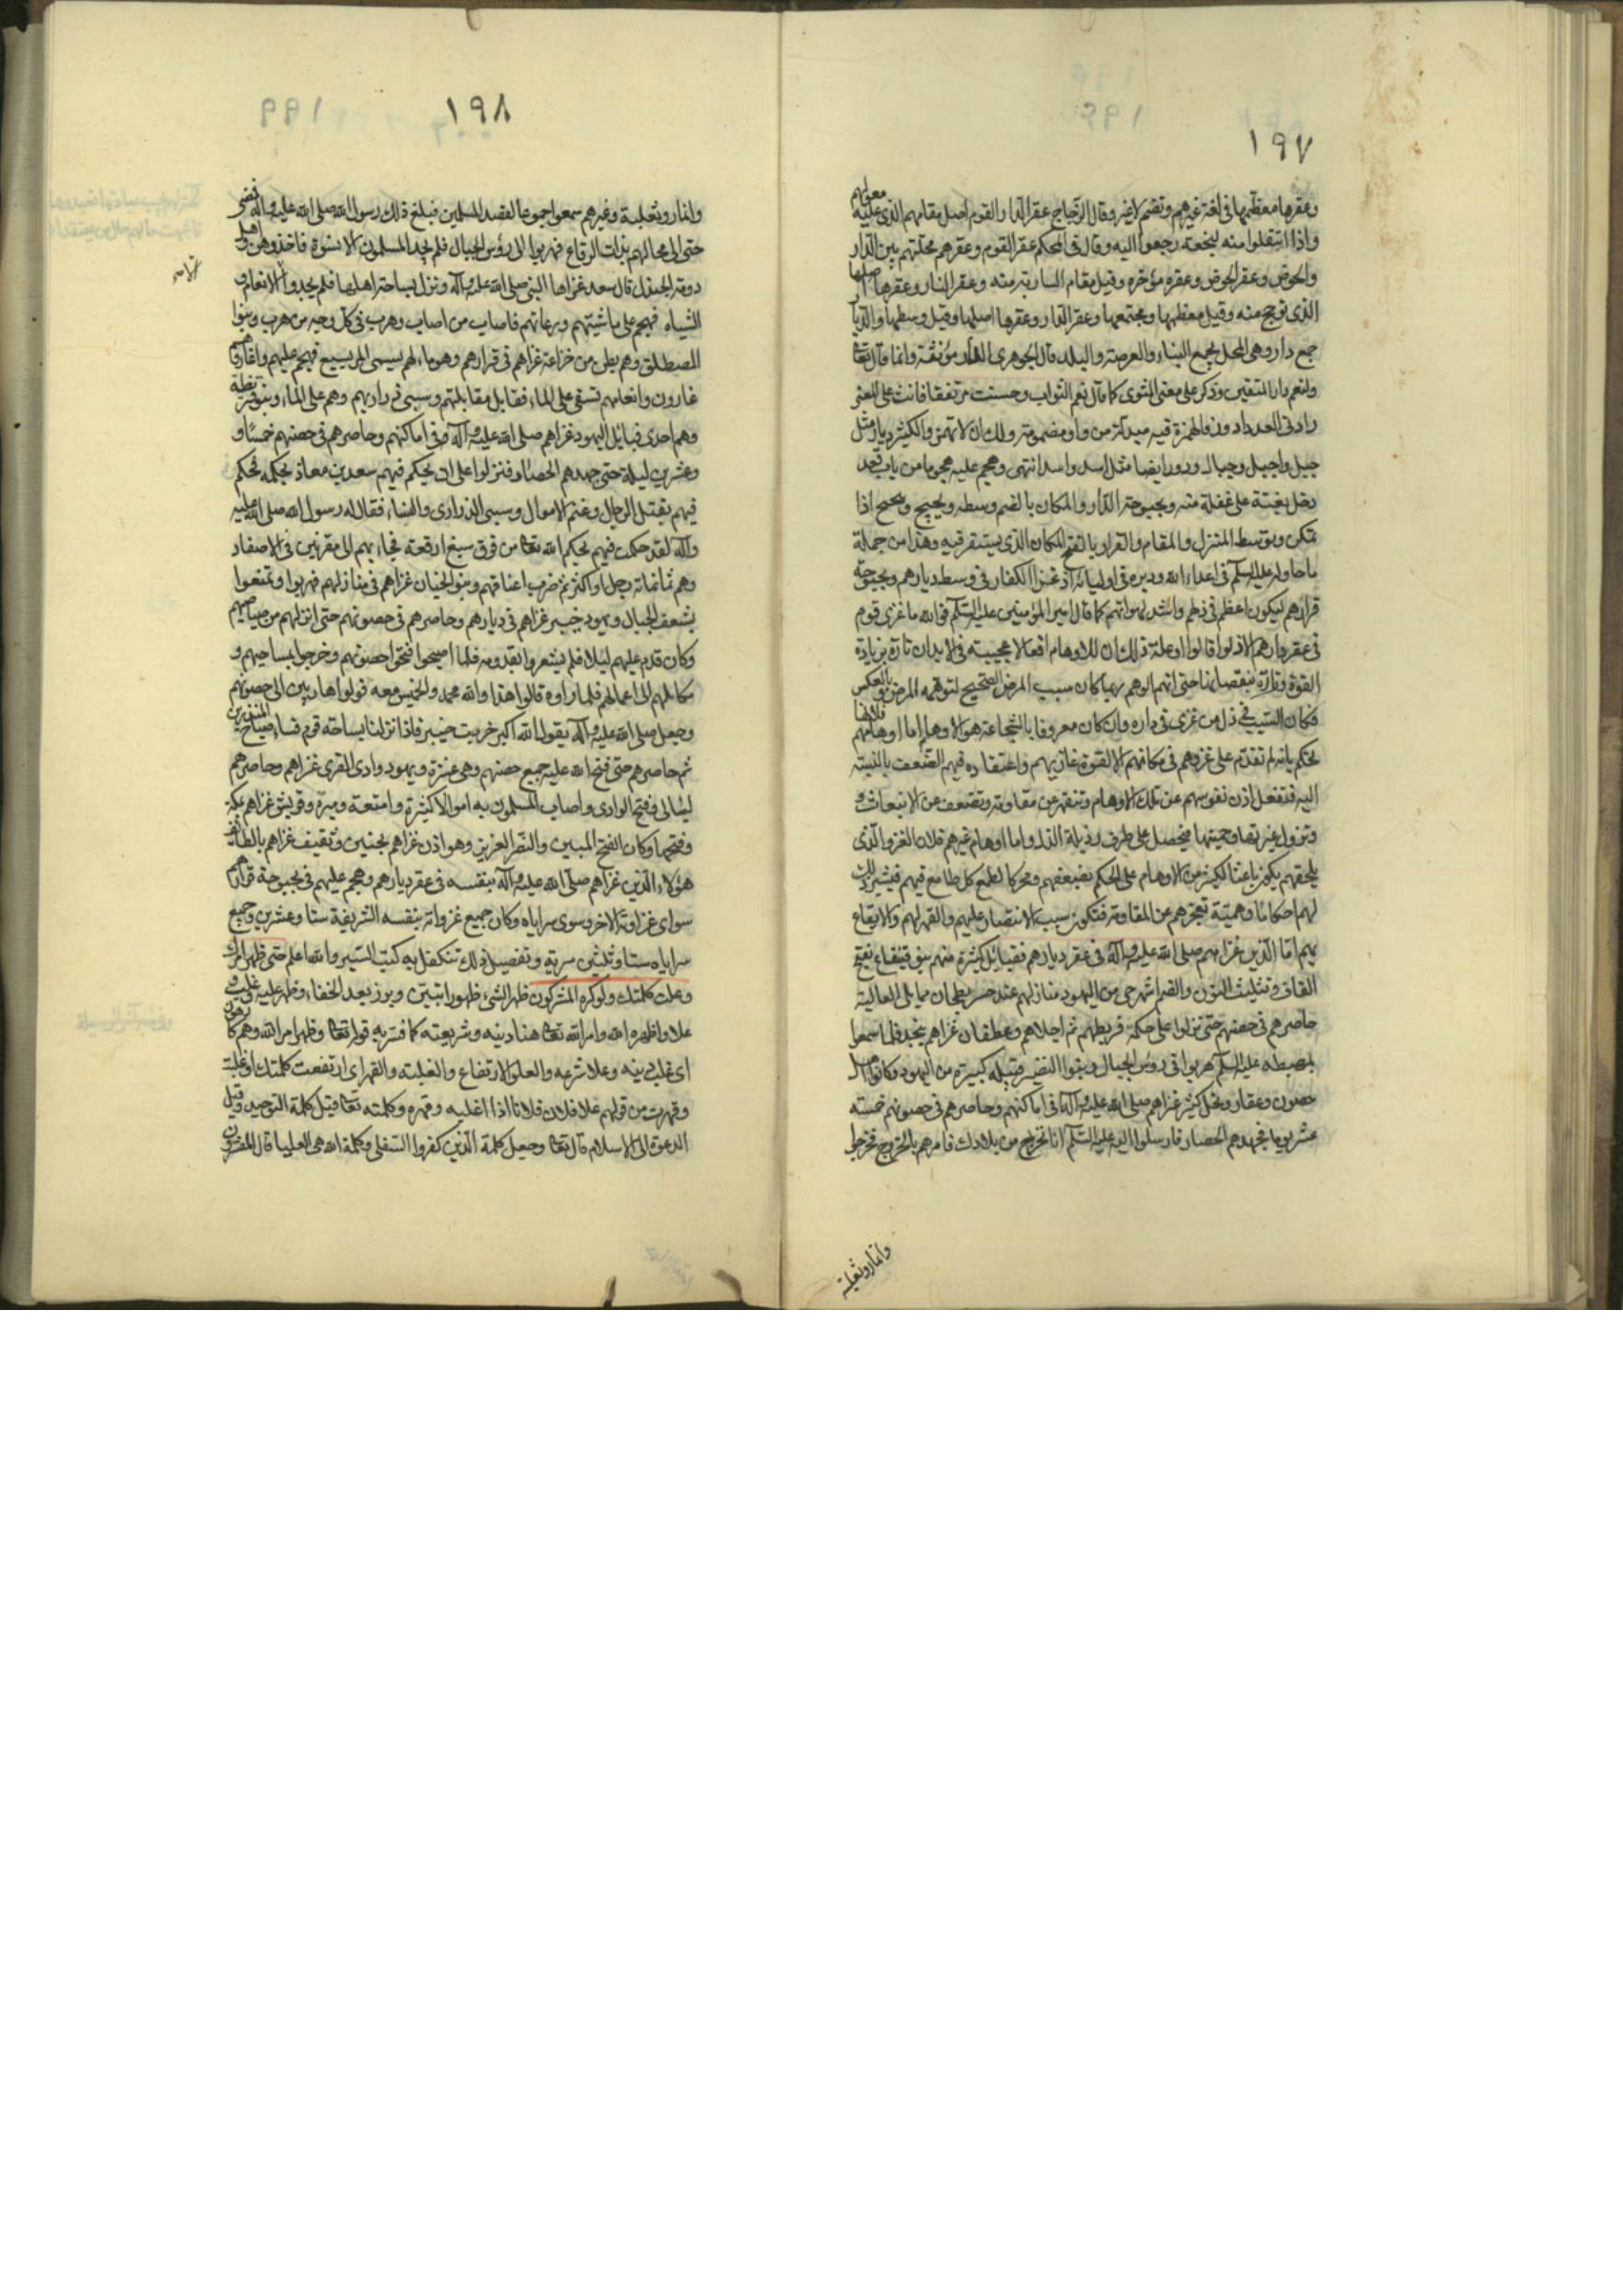 ١٩٧
وعقرها معظمها فى لغة غيرهم وتضم لا غير وقال الزجاج عقر الدار والقوم اصل مقامهم الذى عليه معولهم
واذا انتقلوا منه لنجعته رجعوا اليه وقال فى المحكم عقر القوم وعقرهم محلتهم بين الدار
والحوض وعقر الحوض وعقره مؤخره وقيل مقام الشاربة منه وعقر النار وعقرها اصلها
الذى توجج منه وقيل معظمها ومجتمعها وعقر الدار وعقرها اصلها وقيل وسطها والديار
جمع دار وهى المحل يجمع البناء والعرصة والبلد قال الجوهرى الدار مؤنثة وانما قال تعالى
ولنعم دار المتقين وذكر على معنى المثوى كما قال نعم الثواب وحسنت مرتفقا فانث على المعنى
وادنى العدد ادؤر فالهمزة فيه مبدلة من واو مضمومة ولك ان لا تهمز والكثير ديار مثل
جبل واجبل وجبال ودور ايضا مثل اسد واسد انتهى وهجم عليه هجوما من باب قعد
دخل بغتة على غفلة منه وبحبوحة الدار والمكان بالضم وسطه وبحبح وتبحبح اذا
تمكن وتوسط المنزل والمقام والقرار بالفتح المكان الذى يستقر فيه وهذا من جملة
ما حاوله عليه السلم فى اعداء الله ودبره فى اوليائه اذ غزا الكفار فى وسط ديارهم وبحبوحة
قرارهم ليكون اعظم فى ذلهم واشد لهوانهم كما قال امير المؤمنين عليه السلم فوالله ما غزى قوم
فى عقر دارهم الا ذلوا قالوا وعلة ذلك ان للاوهام افعالا عجيبة فى الابدان تارة بزيادة
القوة وتارة بنقصانها حتى ان الوهم ربما كان سبب المرض الصحيح لتوهمه المرض وبالعكس
فكان السبب فى ذل من غزى فى داره وان كان معروفا بالشجاعة هو الاوهام اما اوهامهم فلانها
تحكم بانه لم تقدم على غزوهم فى مكانهم الا لقوة غازيهم واعتقاده فيهم الضعف بالنسبة
اليه فتنفعل اذن نفوسهم عن تلك الاوهام وتنقهر عن مقاومته وتضعف عن الانبعاث و
وتزول غيرتها وحميتها فيحصل على طرف رذيلة الذل واما اوهام غيرهم فلان الغزو الذى
يلحقهم يكون باعثا لكثير من الاوهام على الحكم بضعفهم ومحركا لطمع كل طامع فيهم فيثير ذلك
لهم احكاما وهمية تعجزهم عن المقاومة فتكون سبب الانتصار عليهم والقهر لهم والايقاع
بهم اما الذين غزاهم صلى الله عليه وآله فى عقر ديارهم فقبائل كثيرة منهم بنو قينقاع بفتح
القاف وتثليث النون والضم اشهر حى من اليهود منازلهم عند جسر بطحان مما يلى العالية
حاصرهم فى حصنهم حتى نزلوا على حكمه فربطهم ثم اجلاهم وغطفان غزاهم بنجد فلما سمعوا
بمهبطه عليه السلم هربوا فى رؤس الجبال وبنوا النضير قبيلة كبيرة من اليهود وكانوا اهل
حصون وعقار ونخل كثير غزاهم صلى الله عليه وآله فى اماكنهم وحاصرهم فى حصونهم خمسة
عشر يوما فجهدهم الحصار فارسلوا اليه عليه السلم انا نخرج من بلادك فامرهم بالخروج فخرجوا
وانمار وثعلبة
١٩٨
وانمار وثعلبة وغيرهم سمعوا جموعا لقصد المسلمين فبلغ ذلك رسول الله صلى الله عليه وآله فمضى
حتى اتى محالهم بذات الرقاع فهربوا الى رؤس الجبال فلم يجد المسلمون الا نسوة فاخذوهن واهل
دومة الجندل قال سعد غزاها النبى صلى الله عليه وآله ونزل بساحة اهلها فلم يجدوا الا النعام و
الشياه فهجم على ماشيتهم ورعاتهم فاصاب من اصاب وهرب فى كل وجه من هرب وبنوا
المصطلق وهم بطن من خزاعة غزاهم فى قرارهم وهو ماء لهم يسمى المريسيع فهجم عليهم واغارهم وهم
غارون وانعامهم تسقى على الماء فقاتل مقاتلتهم وسبى ذراريهم وهم على الماء وبنو قريظة
وهم احدى قبائل اليهود غزاهم صلى الله عليه وآله فى اماكنهم وحاصرهم فى حصنهم خمسا و
وعشرين ليلة حتى جهدهم الحصار فنزلوا على ان يحكم فيهم سعد بن معاذ بحكمه فحكم
فيهم بقتل الرجال وغنم الاموال وسبى الذرارى والنساء فقال له رسول الله صلى الله عليه
وآله لقد حكمت فيهم بحكم الله تعالى من فوق سبع ارقعة فجاء بهم الى مقرنين فى الاصفاد
وهم ثمانمائة رجل او اكثر ثم ضرب اعناقهم وبنو لحيان غزاهم فى منازلهم فهربوا وتمنعوا
بشعف الجبال ويهود خيبر غزاهم فى ديارهم وحاصرهم فى حصونهم حتى انزلهم من صياصيهم
وكان قدم عليهم ليلا فلم يشعروا بقدومه فلما اصبحوا فتحوا حصونهم وخرجوا بمساحيهم و
مكاتلهم الى اعمالهم فلما راوه قالوا هذا والله محمد والخميس معه فولوا هاربين الى حصونهم
وجعل صلى الله عليه وآله يقول الله اكبر خربت خيبر فاذا نزلنا بساحة قوم فساء صباح المنذرين
ثم حاصرهم حتى فتح الله عليه جميع حصنهم وهى عشرة ويهود وادى القرى غزاهم وحاصرهم
ليالى ففتح الوادى واصاب المسلمون به اموالا كثيرة وامتعة وميرة وقريش غزاهم بمكة
وفتحها وكان الفتح المبين والنصر العزيز وهوازن غزاهم بحنين وثقيف غزاهم بالطائف
هؤلاء الذين غزاهم صلى الله عليه وآله بنفسه فى عقر ديارهم وهجم عليهم فى بحبوحة قرارهم
سواى غزاوته الاخر وسوى سراياه وكان جميع غزواته بنفسه الشريفة ستا وعشرين وجميع
سراياه ستا وثلثين سرية وتفصيل ذلك تتكفل به كتب السير والله اعلم حتى ظهر امرك
وعلت كلمتك ولو كره المشركون ظهر الشئ ظهورا تبين وبرز بعد الخفاء وظهر عليه غلب و
علا واظهره الله وامر الله تعالى هنا دينه وشريعته كما فسر به قوله تعالى وظهر امر الله وهم كارهون
اى غلب دينه وعلا شرعه والعلو الارتفاع والغلبة والقهر اى ارتفعت كلمتك او غلبت
وقهرت من قولهم علا فلان فلانا اذا غلبه وقهره وكلمته تعالى قيل كلمة التوحيد وقيل
الدعوة الى الاسلام قال تعالى وجعل كلمة الذين كفروا السفلى وكلمة الله هى العليا قال المفسرون